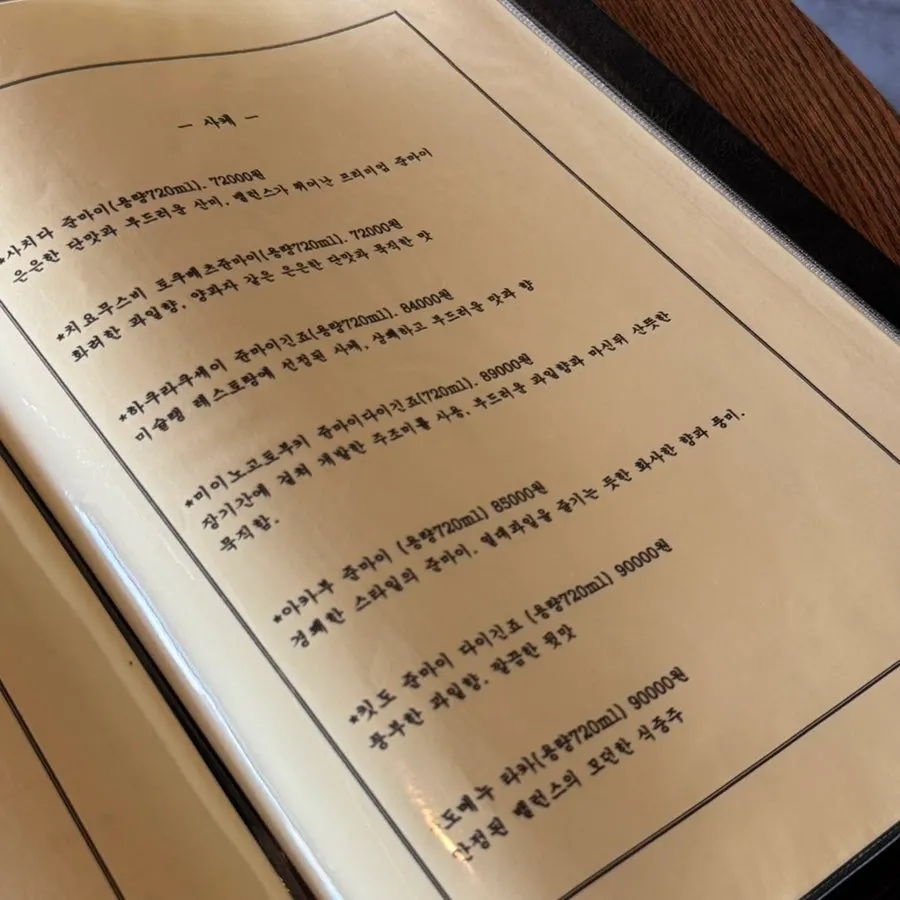 - 사케 -
*사치다 쥰마이(용량720ml). 72000원
은은한 단맛과 부드러운 산미, 밸런스가 뛰어난 프리미엄 쥰마이
*치요무스비 토쿠베츠쥰마이(용량720ml). 72000원
화려한 과일향, 양과자 같은 은은한 단맛과 묵직한 맛
*하쿠라쿠세이 쥰마이긴죠(용량720ml). 84000원
미슐랭 레스토랑에 선정된 사케, 상쾌하고 부드러운 맛과 향
*미이노고토부키 쥰마이다이긴죠(720ml). 89000원
장기간에 걸쳐 개발한 주조미를 사용, 부드러운 과일향과 마신뒤 산뜻한
묵직함.
*아카부 쥰마이 (용량720ml) 85000원
경쾌한 스타일의 쥰마이. 열대과일을 즐기는 듯한 화사한 향과 풍미.
*킷도 쥰마이 다이긴죠 (용량720ml) 90000원
풍부한 과일향, 깔끔한 뒷맛
도메누 타카(용량720ml) 90000원
안정된 밸런스의 모던한 식중주